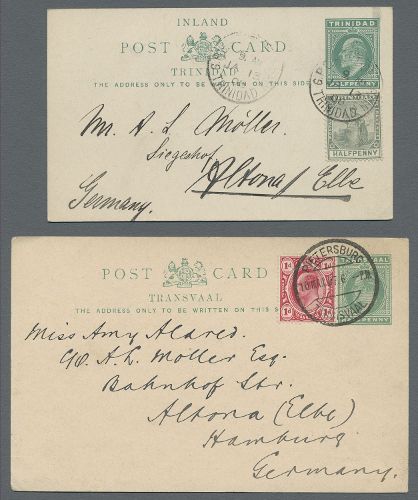 INLAND
POST CARD
TRINIDAD
THE ADDRESS ONLY TO BE WRITTEN ON THIS SIDE
TRINIDAD
HALFPENNY
HALFPENNY
G.P.O. TRINIDAD
Mr. A. L. Möller.
Siegeshof
Altona / Elbe
Germany.
POST CARD
TRANSVAAL
THE ADDRESS ONLY TO BE WRITTEN ON THIS S
1d 1d
PIETERSBURG
TRANSVAAL
TRANSVAAL
Miss Amy Alared.
c/o A. L. Möller Esq.
Bahnhof Str.
Altona (Elbe)
Hamburg
Germany.